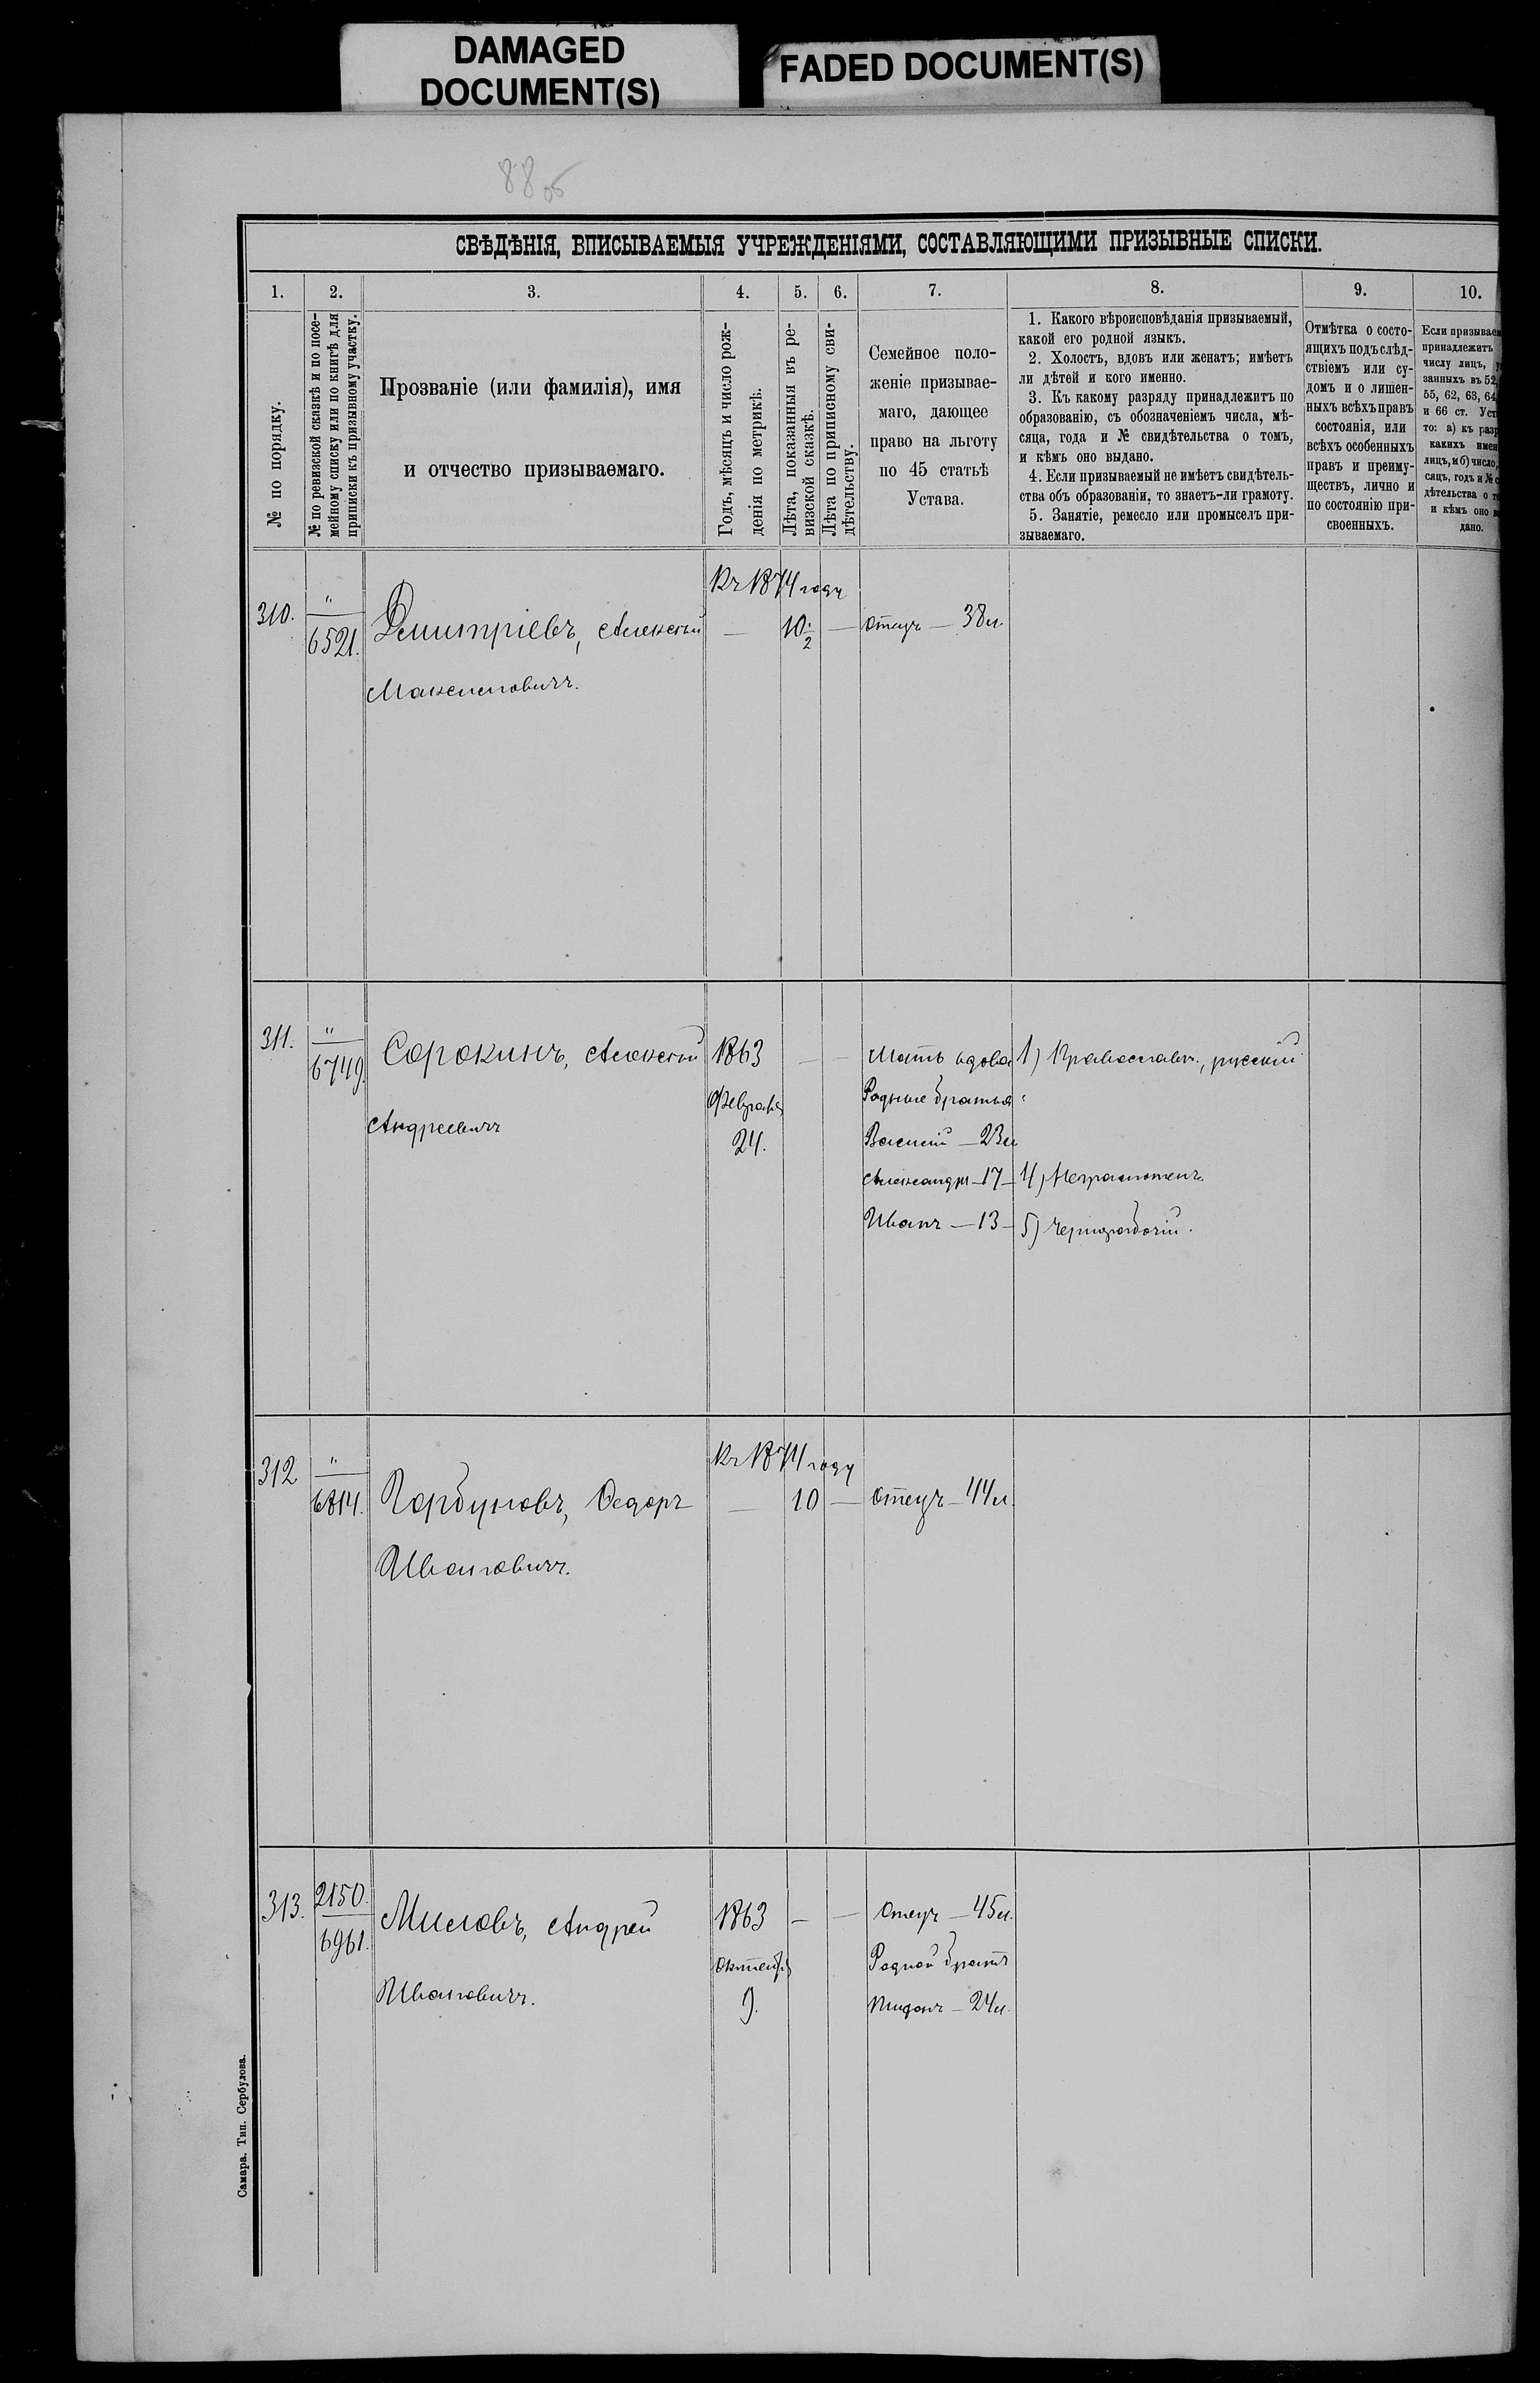 DAMAGED
DOCUMENT(S)
FADED DOCUMENT(S)
88 об
СВѢДѢНІЯ, ВПИСЫВАЕМЫЯ УЧРЕЖДЕНІЯМИ, СОСТАВЛЯЮЩИМИ ПРИЗЫВНЫЕ СПИСКИ.
1. 2. 3. 4. 5. 6. 7. 8. 9. 10.
№ по порядку.
№ по ревизской сказкѣ и по посе-
мейному списку или по книгѣ для
приписки къ призывному участку.
Прозваніе (или фамилія), имя
и отчество призываемаго.
Годъ, мѣсяцъ и число рож-
денія по метрикѣ.
Лѣта, показанныя въ ре-
визской сказкѣ.
Лѣта по приписному сви-
дѣтельству.
Семейное поло-
женіе призывае-
маго, дающее
право на льготу
по 45 статьѣ
Устава.
1. Какого вѣроисповѣданія призываемый,
какой его родной языкъ.
2. Холостъ, вдовъ или женатъ; имѣетъ
ли дѣтей и кого именно.
3. Къ какому разряду принадлежитъ по
образованію, съ обозначеніемъ числа, мѣ-
сяца, года и № свидѣтельства о томъ,
и кѣмъ оно выдано.
4. Если призываемый не имѣетъ свидѣтель-
ства объ образованіи, то знаетъ-ли грамоту.
5. Занятіе, ремесло или промыселъ при-
зываемаго.
Отмѣтка о состо-
ящихъ подъ слѣд-
ствіемъ или су-
домъ и о лишен-
ныхъ всѣхъ правъ
состоянія, или
всѣхъ особенныхъ
правъ и преиму-
ществъ, лично и
по состоянію при-
своенныхъ.
Если призываем
принадлежитъ
числу лицъ, у
занныхъ въ 52,
55, 62, 63, 64
и 66 ст. Уст
то: а) къ разр
какихъ имен
лицъ, и б) число,
сяцъ, годъ и № с
дѣтельства о т
и кѣмъ оно в
дано.
310. " 6521. Дмитріевъ, Алексѣй
Максимовичъ.
Къ 1874 году
— 10 1/2 — Отецъ — 38 л.
311. " 6749. Сорокинъ, Алексѣй
Андреевичъ
1863
Февраля
24.
Мать вдова
Родные братья:
Василій — 23 л
Александръ — 17 —
Иванъ — 13 —
1) Православн., русскій
4) Неграмотенъ.
5) Чернорабочій.
312 " 6814. Горбуновъ, Ѳедоръ
Ивановичъ.
Къ 1874 году
— 10 — Отецъ — 44 л.
313. 2150. 6961. Миловъ, Андрей
Ивановичъ.
1863 — —
Октября
9.
Отецъ — 45 л.
Родной братъ
— 24 л.
Самара. Тип. Сербулова.